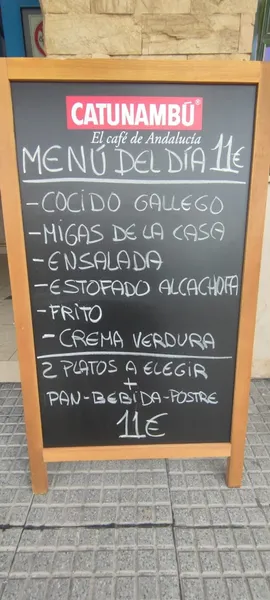 CATUNAMBÚ®
El café de Andalucía
MENÚ DEL DÍA 11€
- COCIDO GALLEGO
- MIGAS DE LA CASA
- ENSALADA
- ESTOFADO ALCACHOFA
- FRITO
- CREMA VERDURA
2 PLATOS A ELEGIR
+
PAN-BEBIDA-POSTRE
11€